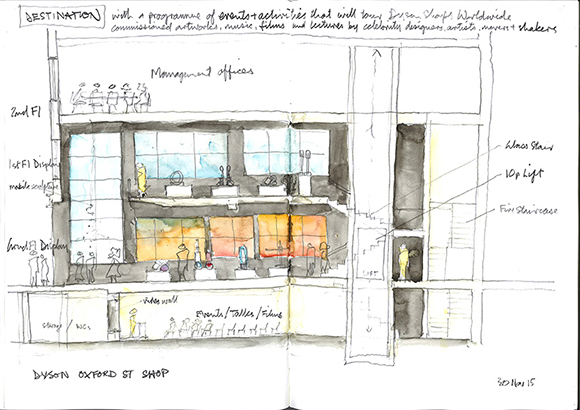 DESTINATION
with a programme of events + activities that will tour Dyson Shops Worldwide
commissioned artworks, music, films and lectures by celebrity designers, artists, movers + shakers
Management offices
2nd Fl
1st Fl Display
mobile sculpture
Glass Stair
10p Lift
Fire Staircase
Ground Fl Display
LIFT
video wall
Events/Talks/Films
/ WCs
DYSON OXFORD ST SHOP
30 Nov 15